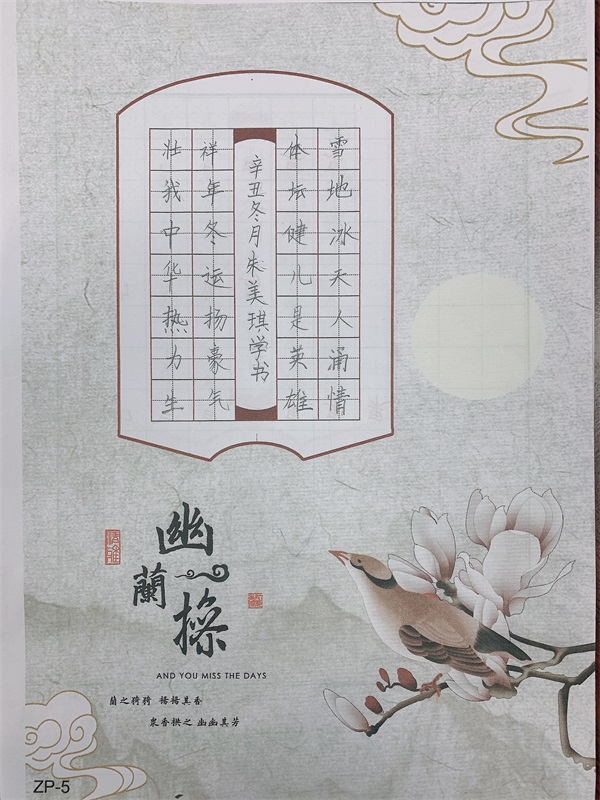 雪地冰天人涌情
体坛健儿是英雄
辛丑冬月朱美琪学书
祥年冬运扬豪气
壮我中华热力生
幽蘭操
AND YOU MISS THE DAYS
蘭之猗猗 揚揚其香
衆香拱之 幽幽其芳
ZP-5